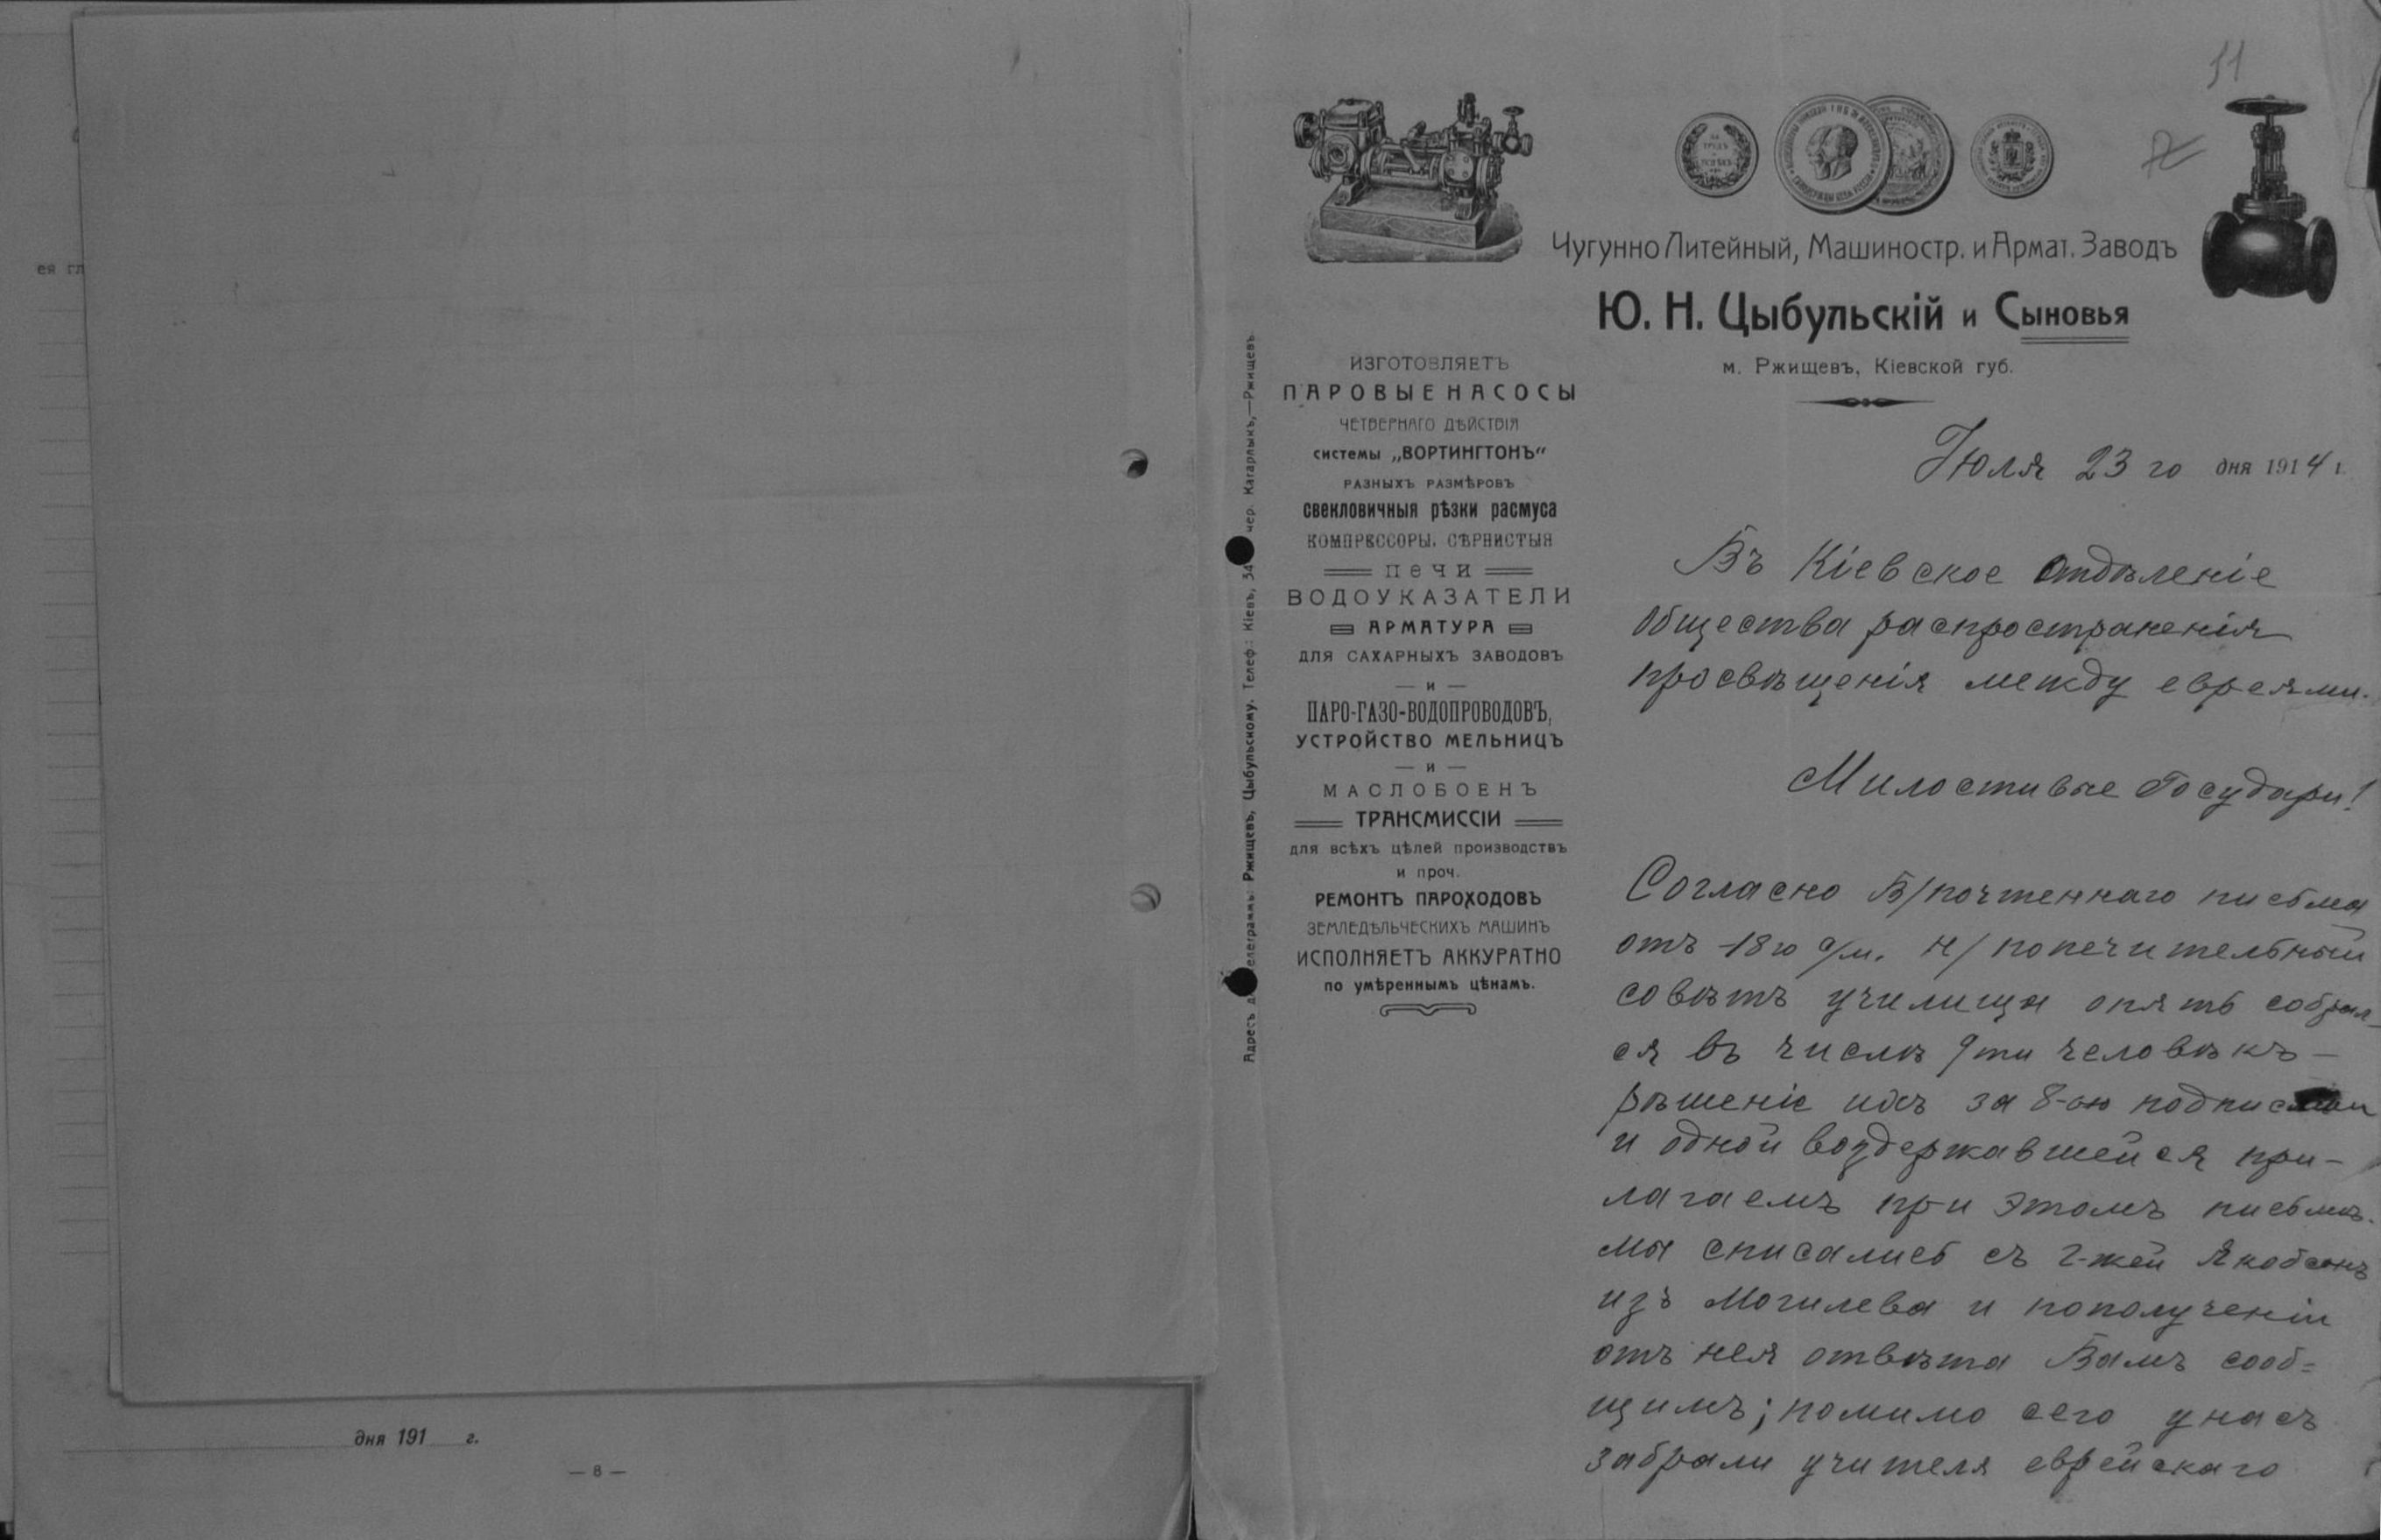 ея гл
дня 191 г.
— 8 —
51
Чугунно Литейный, Машиностр. и Армат. Заводъ
Ю. Н. Цыбульскій и Сыновья
м. Ржищевъ, Кіевской губ.
Адресъ для телеграммъ: Ржищевъ, Цыбульскому. Телеф.: Кіевъ, 34 чер. Кагарлыкъ,—Ржищевъ
ИЗГОТОВЛЯЕТЪ
ПАРОВЫЕ НАСОСЫ
ЧЕТВЕРНАГО ДѢЙСТВІЯ
системы „ВОРТИНГТОНЪ“
РАЗНЫХЪ РАЗМѢРОВЪ
свекловичныя рѣзки расмуса
КОМПРЕССОРЫ, СѢРНИСТЫЯ
печи
ВОДОУКАЗАТЕЛИ
АРМАТУРА
ДЛЯ САХАРНЫХЪ ЗАВОДОВЪ
— и —
ПАРО-ГАЗО-ВОДОПРОВОДОВЪ,
УСТРОЙСТВО МЕЛЬНИЦЪ
— и —
МАСЛОБОЕНЪ
ТРАНСМИССІИ
для всѣхъ цѣлей производствъ
и проч.
РЕМОНТЪ ПАРОХОДОВЪ
ЗЕМЛЕДѢЛЬЧЕСКИХЪ МАШИНЪ
ИСПОЛНЯЕТЪ АККУРАТНО
по умѣреннымъ цѣнамъ.
Іюля 23 го дня 1914 г.
Въ Кіевское Отдѣленіе
Общества распространенія
просвѣщенія между евреями.
Милостивые Государи!
Согласно В/почтеннаго письма
отъ 18го с/м. Н/ попечительный
совѣтъ училища опять собрал-
ся въ числѣ 9ти человѣкъ —
рѣшеніе ихъ за 8-ю подписями
и одной воздержавшейся при-
лагаемъ при этомъ письмѣ.
Мы списались съ г-жей Якобсонъ
изъ Могилева и пополученіи
отъ нея отвѣта Вамъ сооб=
щимъ; помимо сего у насъ
забрали учителя еврейскаго